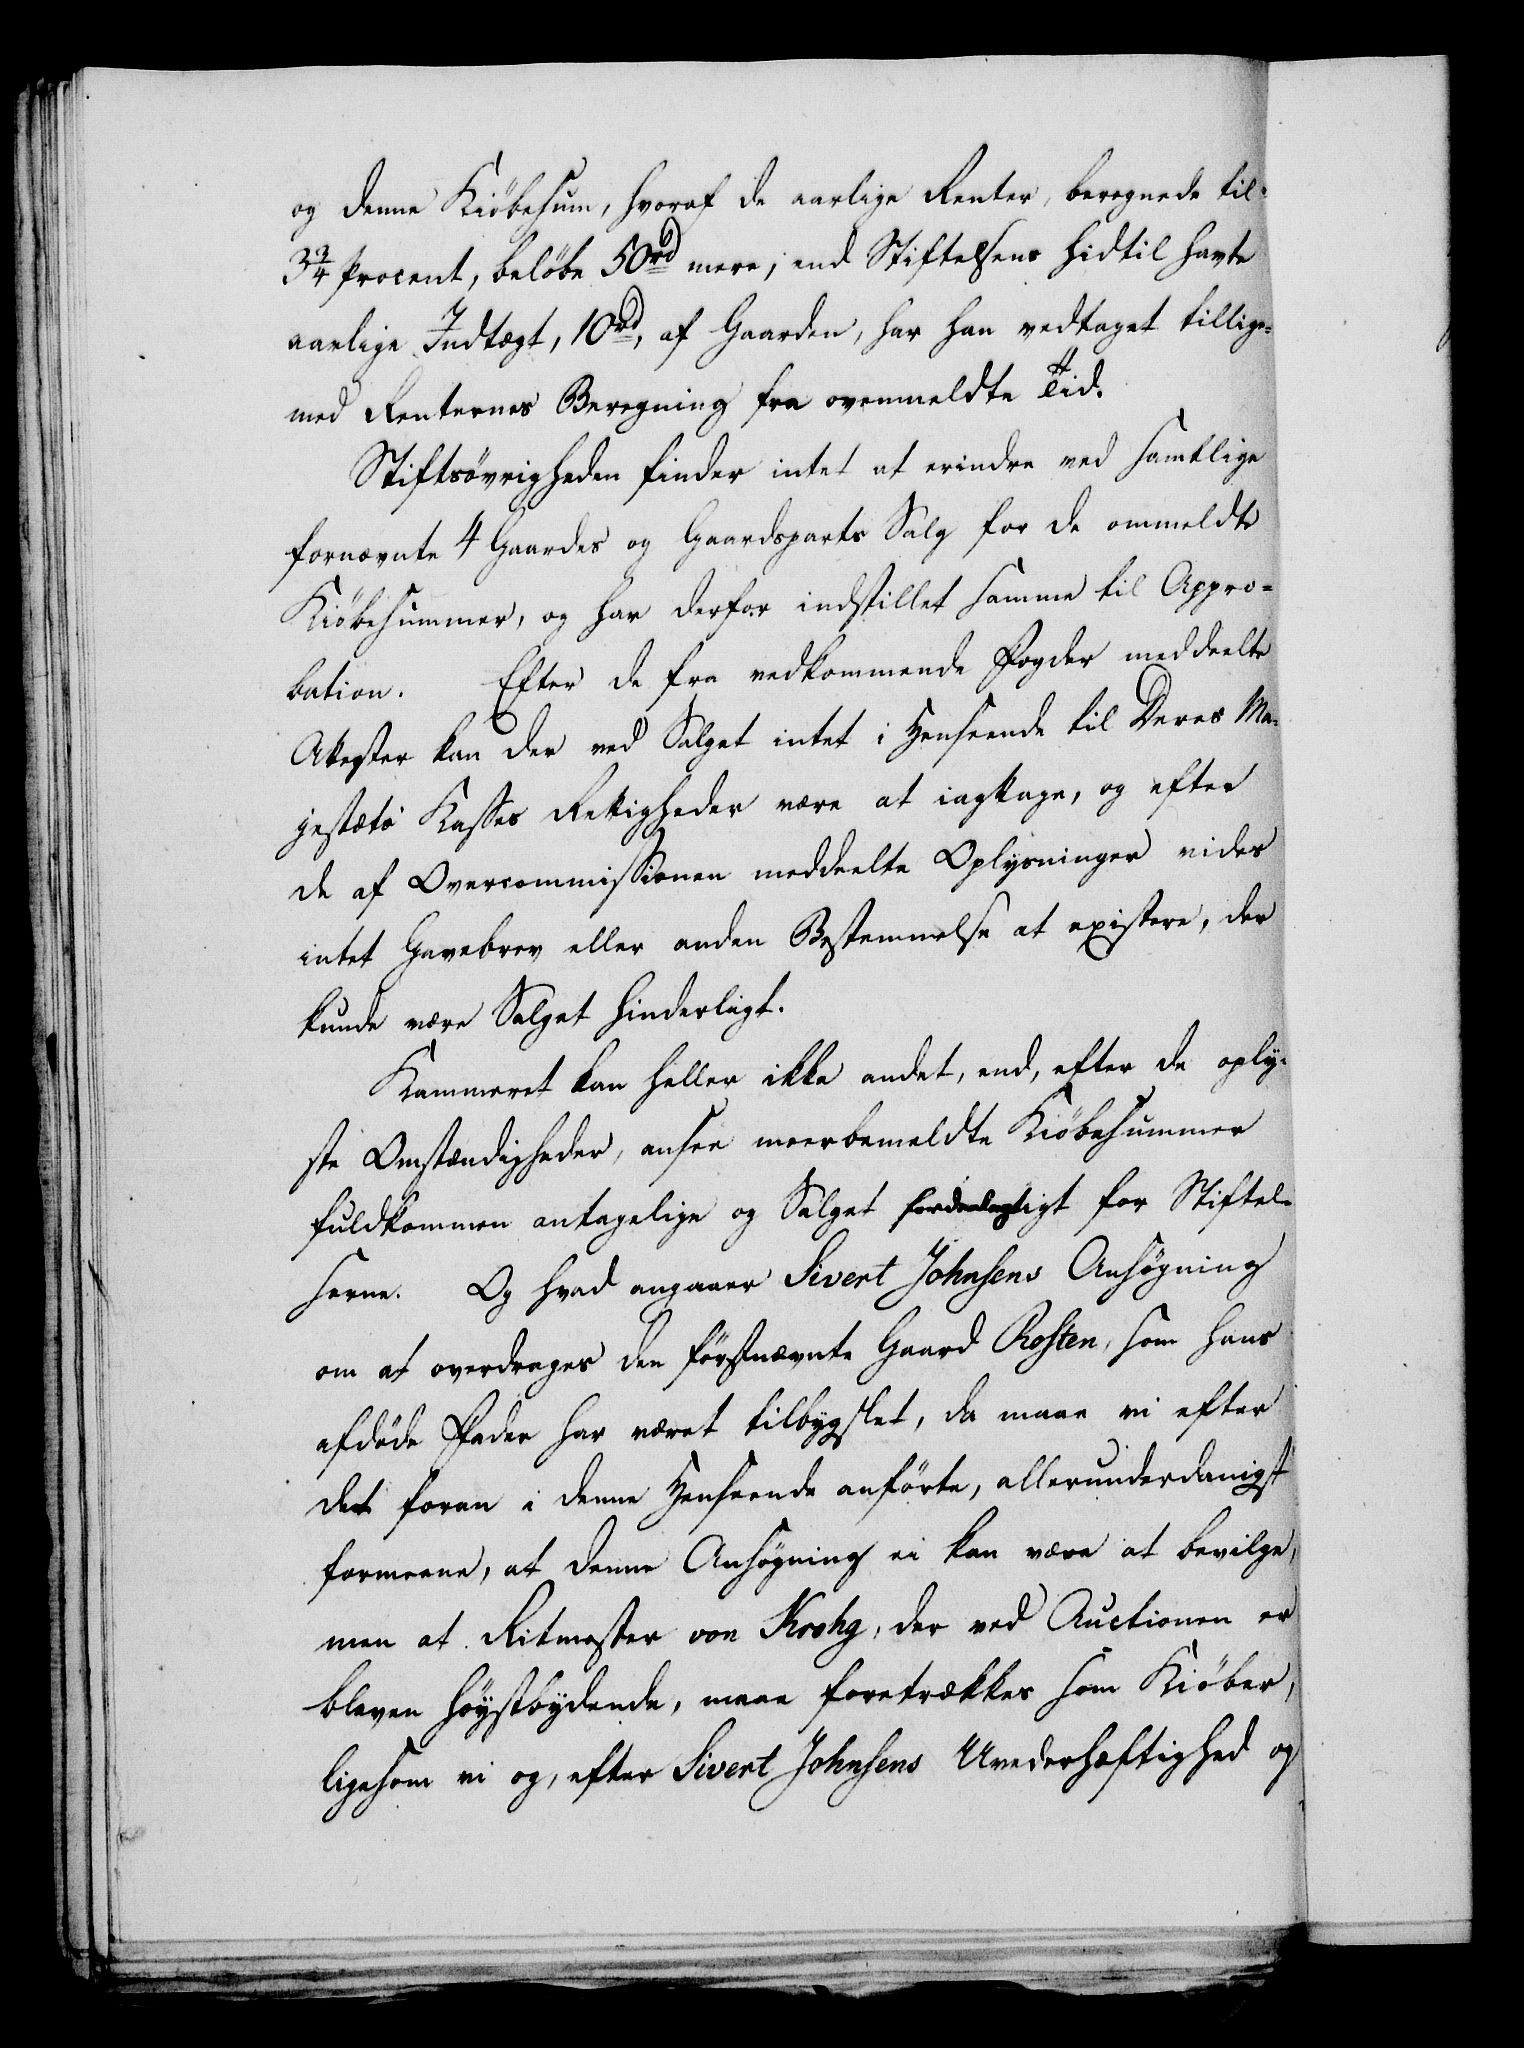 og denne Kiöbesum, hvoraf de aarlige Renter, beregnede til
3 3/4 Procent, beløbe 50rd mere, end Stiftelsens hidtil havte
aarlige Indtægt, 10rd, af Gaarden, har han vedtaget tillige-
med Renternes Beregning fra ovenmeldte Tid.
Stiftsövrigheden finder intet at erindre ved samtlige
fornævnte 4 Gaardes og Gaardsparts Salg for de ommeldte
Kiöbesummer, og har derfor indstillet samme til Appro-
bation. Efter de fra vedkommende Fogder meddeelte
Attester kan der ved Salget intet i Henseende til Deres Ma-
jestæts Kasses Rettigheder være at iagttage, og efter
de af Overcommissionen meddeelte Oplysninger vides
intet Gavebrev eller anden Bestemmelse at existere, der
kunde være Salget hinderligt.
Kammeret kan heller ikke andet, end, efter de oply-
ste Omstændigheder, ansee meerbemeldte Kiöbesummer
fuldkommen antagelige og Salget fordeelagtigt for Stiftel-
serne. Og hvad angaaer Sivert Johnsens Ansøgning
om at overdrages den förstnævnte Gaard Rosten, som hans
afdöde Fader har været tilbygslet, da maae vi efter
det foran i denne Henseende anförte, allerunderdanigst
formeene, at denne Ansøgning ei kan være at bevilge,
men at Ritmester von Krohg, der ved Auctionen er
bleven höystbydende, maae foretrækkes som Kiöber,
ligesom vi og, efter Sivert Johnsens Uvederhæftighed og